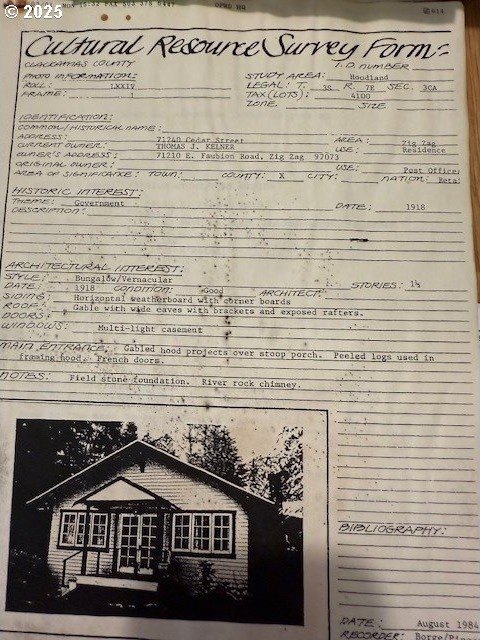 © 2025
Cultural Resource Survey Form
CLACKAMAS COUNTY I.D. NUMBER
PHOTO INFORMATION: STUDY AREA: Hoodland
ROLL: LXXIV LEGAL: T. 3S R. 7E SEC. 3CA
FRAME: 1 TAX(LOTS): 4100
ZONE. SIZE
IDENTIFICATION:
COMMON/HISTORICAL NAME:
ADDRESS: 71240 Cedar Street AREA: Zig Zag
CURRENT OWNER: THOMAS J. KELNER USE: Residence
OWNER'S ADDRESS: 71210 E. Faubion Road, Zig Zag 97073
ORIGINAL OWNER: USE: Post Office
AREA OF SIGNIFICANCE: TOWN: COUNTY: X CITY: NATION:
HISTORIC INTEREST:
THEME: Government DATE: 1918
DESCRIPTION:
ARCHITECTURAL INTEREST:
STYLE: Bungalow/Vernacular STORIES: 1½
DATE: 1918 CONDITION: Good ARCHITECT:
SIDING: Horizontal weatherboard with corner boards
ROOF: Gable with wide eaves with brackets and exposed rafters.
DOORS:
WINDOWS: Multi-light casement
MAIN ENTRANCE: Gabled hood projects over stoop porch. Peeled logs used in
framing hood. French doors.
NOTES: Field stone foundation. River rock chimney.
BIBLIOGRAPHY:
DATE: August 1984
RECORDER: